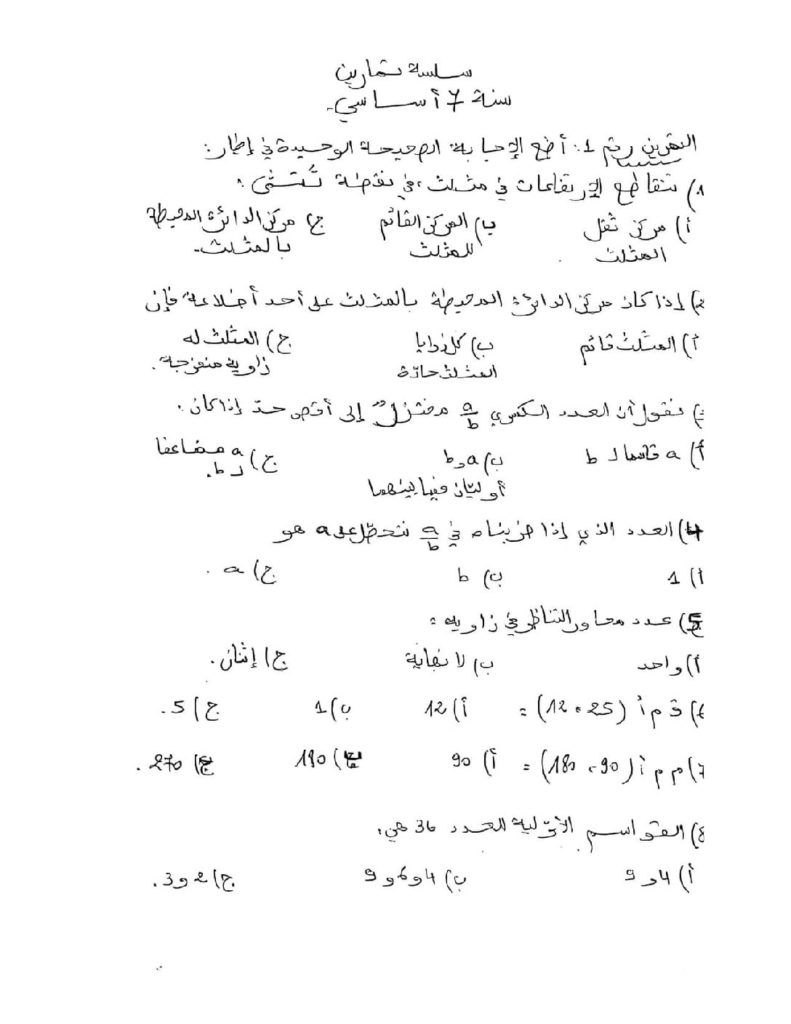 سلسة تمارين
سنة 7 أساسي.
التمرين رقم 1: أضع الإجابة الصحيحة الوحيدة في إطار:
1) تتقاطع الإرتفاعات في مثلث، في نقطة تُسمّى:
أ) مركز ثقل المثلث ب) المركز القائم للمثلث ج) مركز الدائرة المحيطة بالمثلث.
2) إذا كان مركز الدائرة المحيطة بالمثلث على أحد أضلاعه فإن
أ) المثلث قائم ب) كل زوايا المثلث حادّة ج) المثلث له زاوية منفرجة.
) نقول أن العدد الكسري a/b مختزل إلى أقصى حدّ إذا كان:
أ) a قاسما لـ b ب) a و b أوليّان فيما بينهما ج) a مضاعفا لـ b.
4) العدد الذي إذا ضربناه في a/b نتحصّل على a هو
أ) 1 ب) b ج) a.
5) عدد محاور التناظر في زاوية:
أ) واحد ب) لا نهاية ج) إثنان.
6) ق م أ (25، 12) = أ) 12 ب) 1 ج) 5.
7) م م أ (90، 180) = أ) 90 ب) 180 ج) 270.
8) القواسم الأوّلية للعدد 36 هي:
أ) 4 و 9 ب) 4 و 6 و 9 ج) 2 و 3.